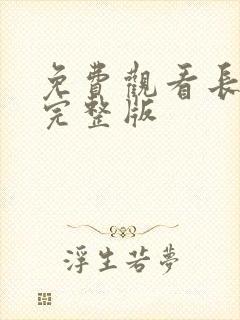 免費觀看長
完整版
浮生若夢